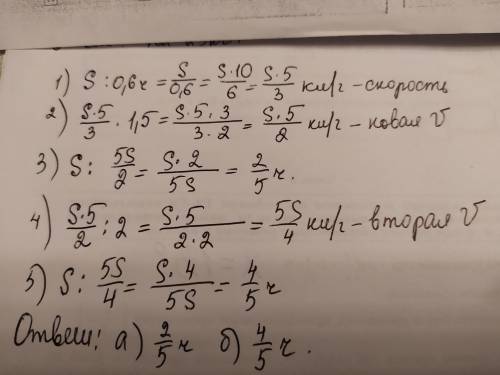 1) S : 0,6 ч = S/0,6 = S·10/6 = S·5/3 км/г – скорость
2) S·5/3 · 1,5 = S·5·3/3·2 = S·5/2 км/г – новая V
3) S : 5S/2 = S·2/5S = 2/5 ч.
4) S·5/2 : 2 = S·5/2·2 = 5S/4 км/г – вторая V
5) S : 5S/4 = S·4/5S = 4/5 ч
Ответ: а) 2/5 ч б) 4/5 ч.